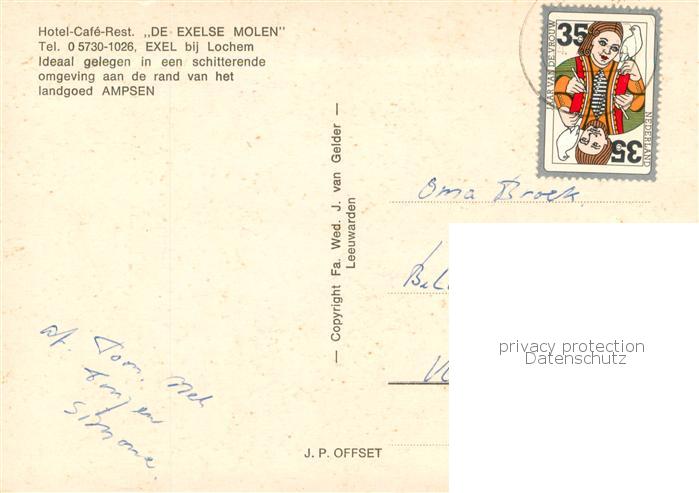 Hotel-Café-Rest. ,,DE EXELSE MOLEN"
Tel. 0 5730-1026, EXEL bij Lochem
Ideaal gelegen in een schitterende
omgeving aan de rand van het
landgoed AMPSEN
35
JAAR VAN DE VROUW
NEDERLAND
35
— Copyright Fa. Wed. J. van Gelder —
Leeuwarden
Oma Broek
privacy protection
Datenschutz
af. Tom, Nel
Simone.
J. P. OFFSET